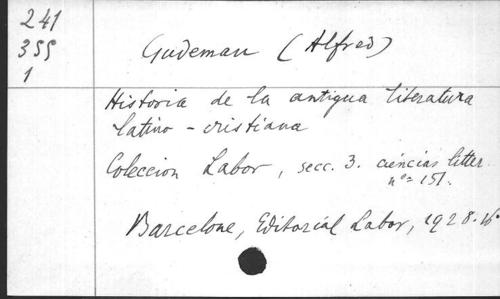 241
355
1
Gudeman (Alfred)
Historia de la antigua literatura
latino-cristiana
Coleccion Labor, secc. 3. ciencias litter.
nº= 151.
Barcelone, Editorial Labor, 1928. 16º